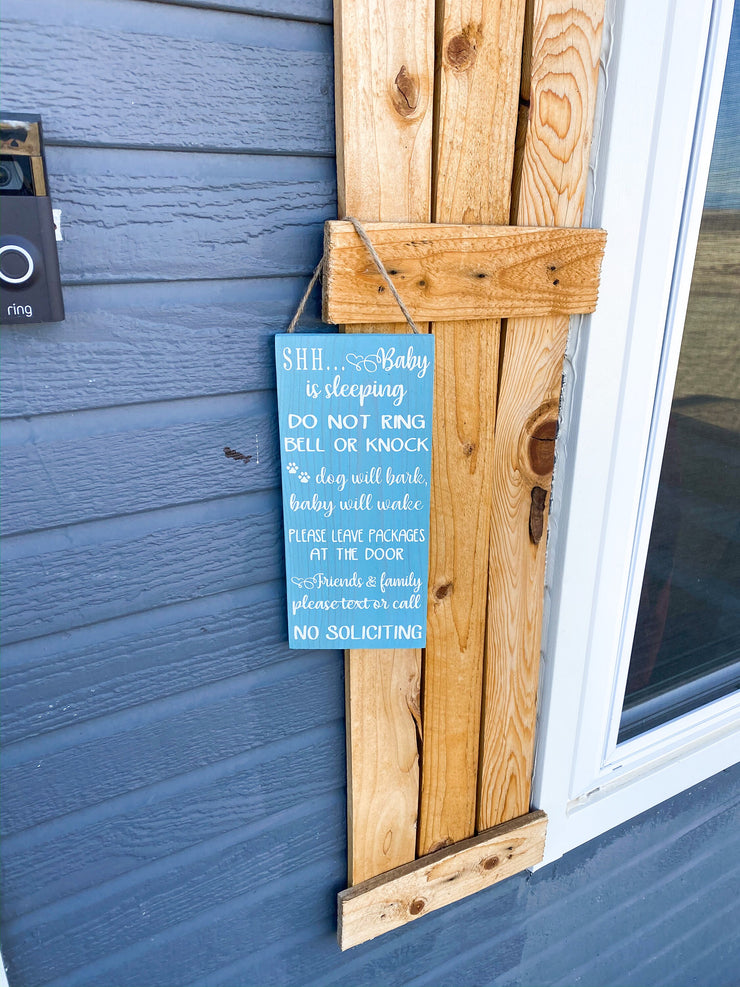 ring
SHH... Baby
is sleeping
DO NOT RING
BELL OR KNOCK
dog will bark,
baby will wake
PLEASE LEAVE PACKAGES
AT THE DOOR
Friends & family
please text or call
NO SOLICITING